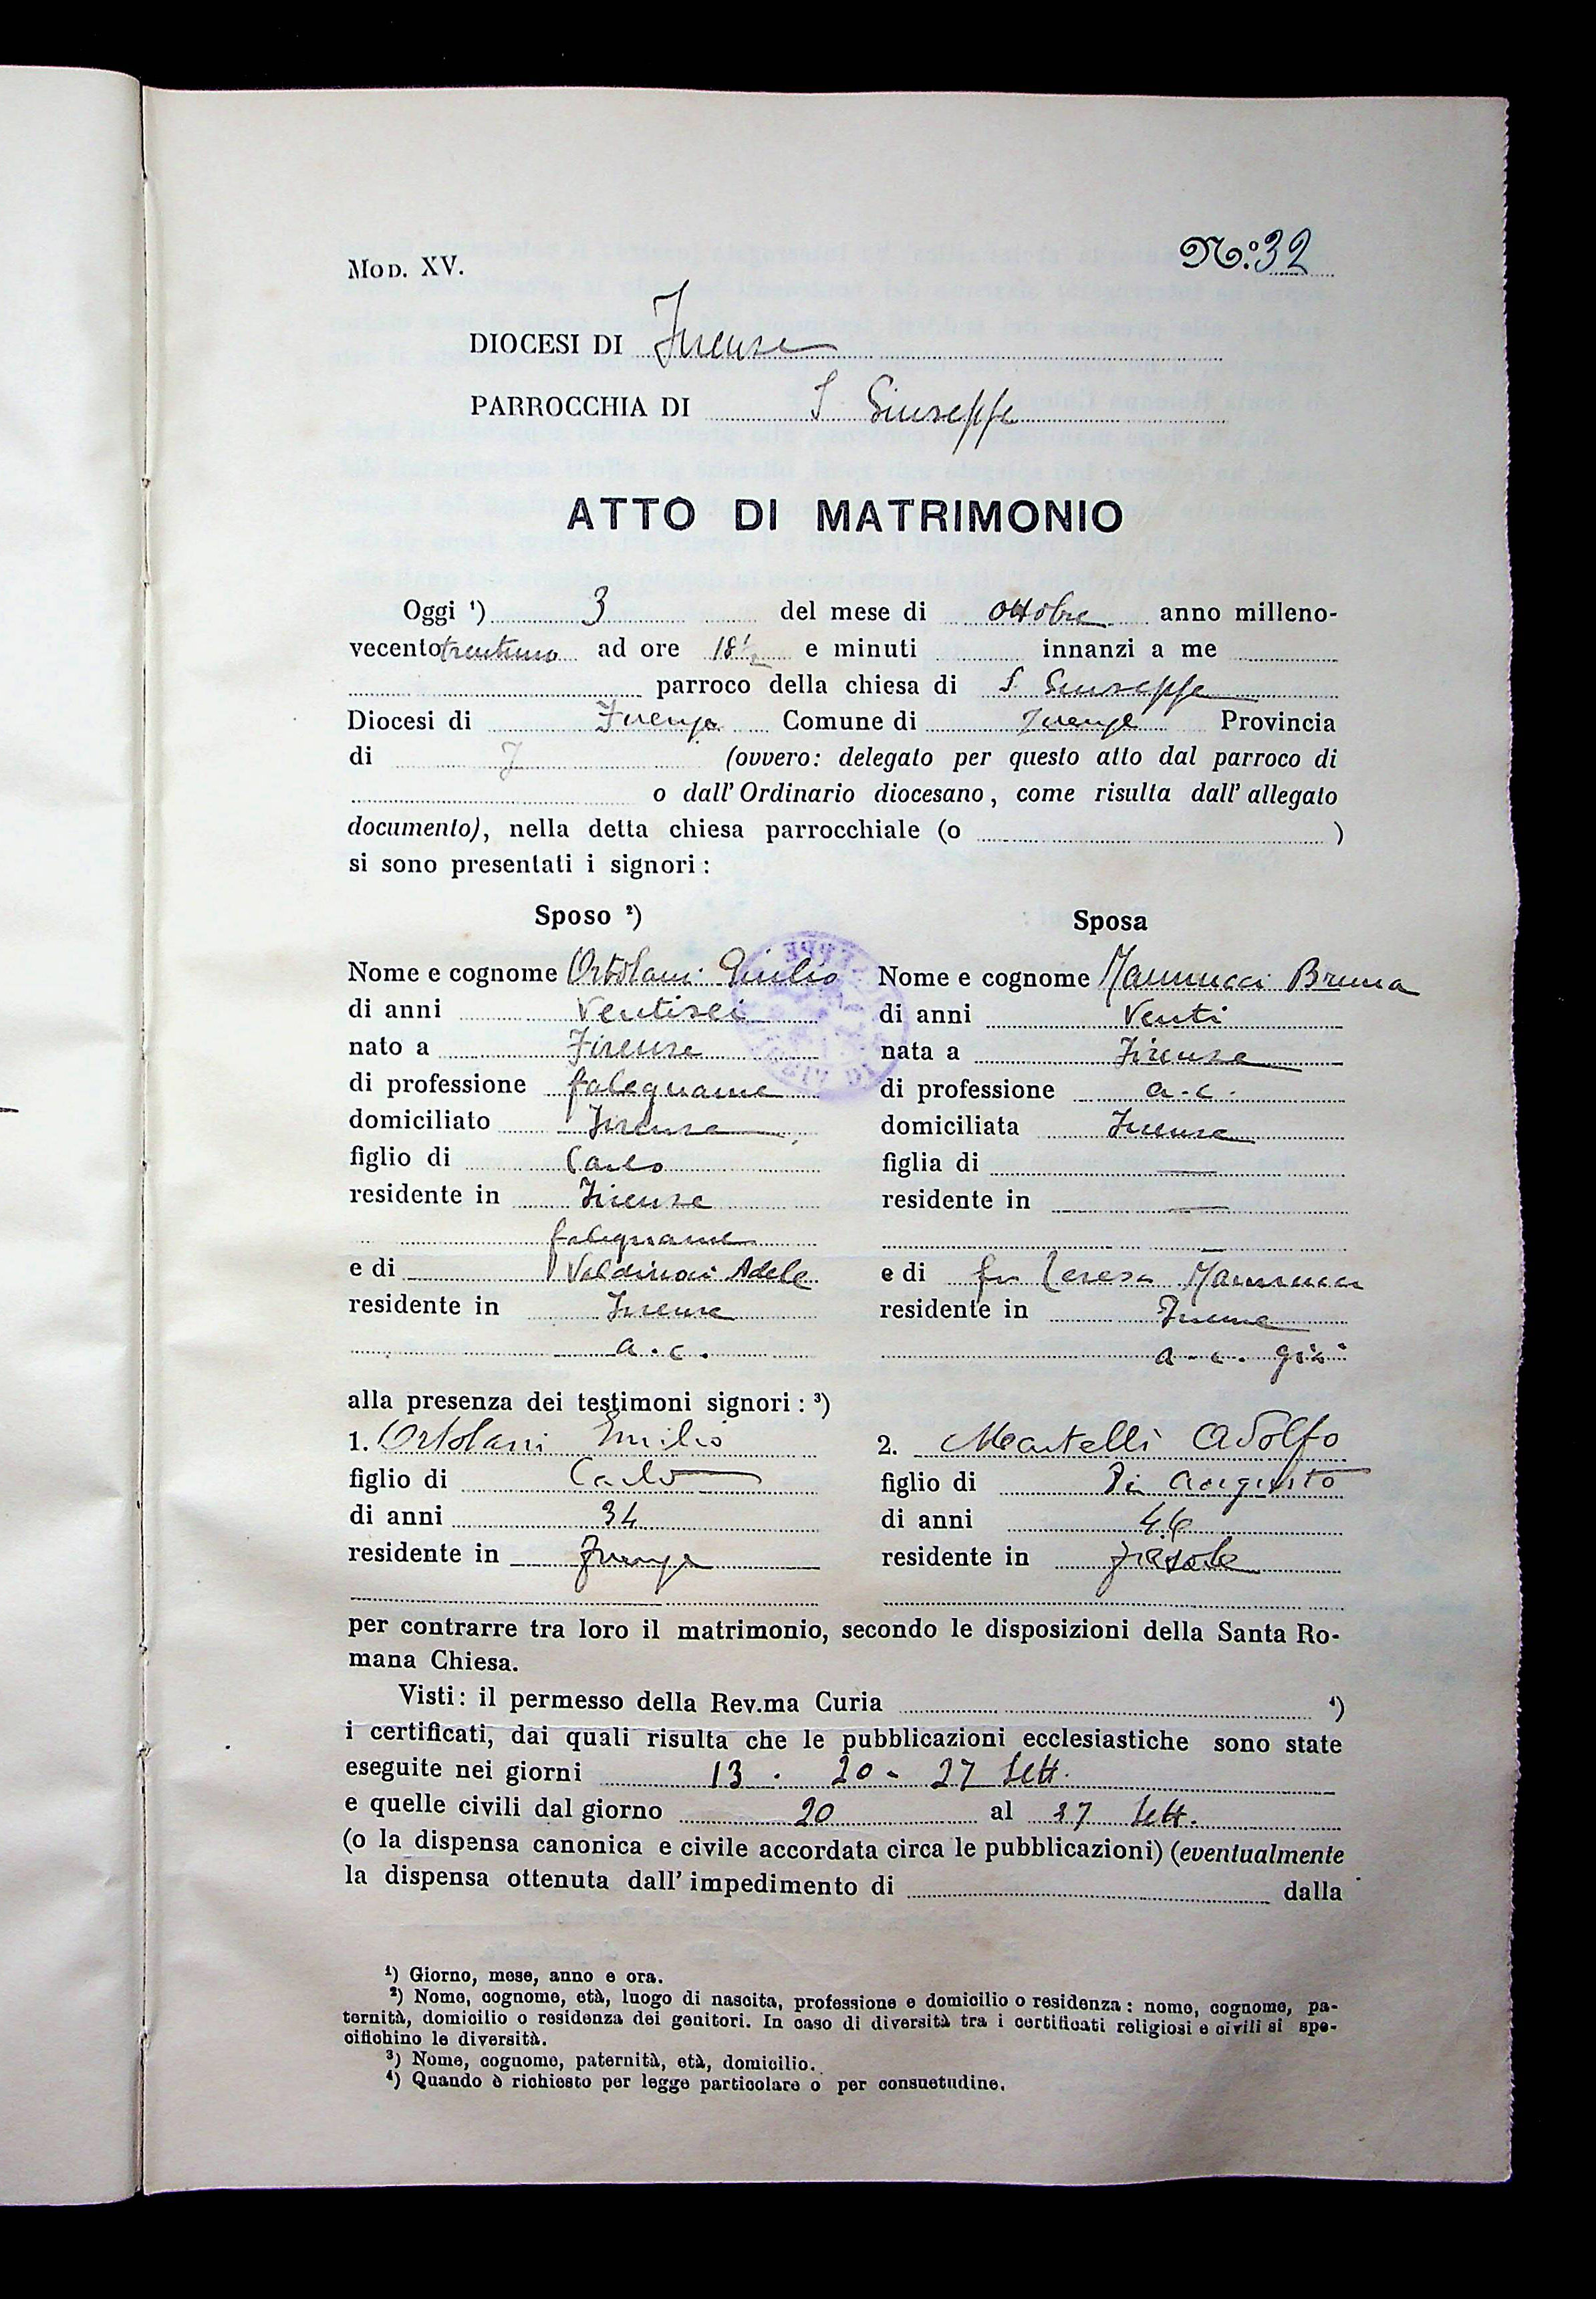 Mod. XV.
N.º 32
DIOCESI DI Firenze
PARROCCHIA DI S Giuseppe
ATTO DI MATRIMONIO
Oggi ¹) 3 del mese di ottobre anno milleno-
vecentotrentuno ad ore 18½ e minuti innanzi a me
parroco della chiesa di S. Giuseppe
Diocesi di Firenze Comune di Firenze Provincia
di F (ovvero: delegato per questo atto dal parroco di
o dall' Ordinario diocesano, come risulta dall' allegato
documento), nella detta chiesa parrocchiale (o )
si sono presentati i signori:
Sposo ²) Sposa
Nome e cognome Ortolani Giulio Nome e cognome Mannucci Bruna
di anni Ventisei di anni Venti
nato a Firenze nata a Firenze
di professione falegname di professione a.c.
domiciliato Firenze domiciliata Firenze
figlio di Carlo figlia di —
residente in Firenze residente in —
falegname —
e di Valdinoci Adele e di fu Teresa Mannucci
residente in Firenze residente in Firenze
a.c. a.c. già
alla presenza dei testimoni signori: ³)
1. Ortolani Emilio 2. Martelli Adolfo
figlio di Carlo figlio di Di Augusto
di anni 34 di anni 46
residente in Firenze residente in Fiesole
per contrarre tra loro il matrimonio, secondo le disposizioni della Santa Ro-
mana Chiesa.
Visti: il permesso della Rev.ma Curia ⁴)
i certificati, dai quali risulta che le pubblicazioni ecclesiastiche sono state
eseguite nei giorni 13 . 20 - 27 Sett.
e quelle civili dal giorno 20 al 27 Sett.
(o la dispensa canonica e civile accordata circa le pubblicazioni) (eventualmente
la dispensa ottenuta dall' impedimento di dalla
¹) Giorno, mese, anno e ora.
²) Nome, cognome, età, luogo di nascita, professione e domicilio o residenza: nome, cognome, pa-
ternità, domicilio o residenza dei genitori. In caso di diversità tra i certificati religiosi e civili si spe-
cifichino le diversità.
³) Nome, cognome, paternità, età, domicilio.
⁴) Quando è richiesto per legge particolare o per consuetudine.